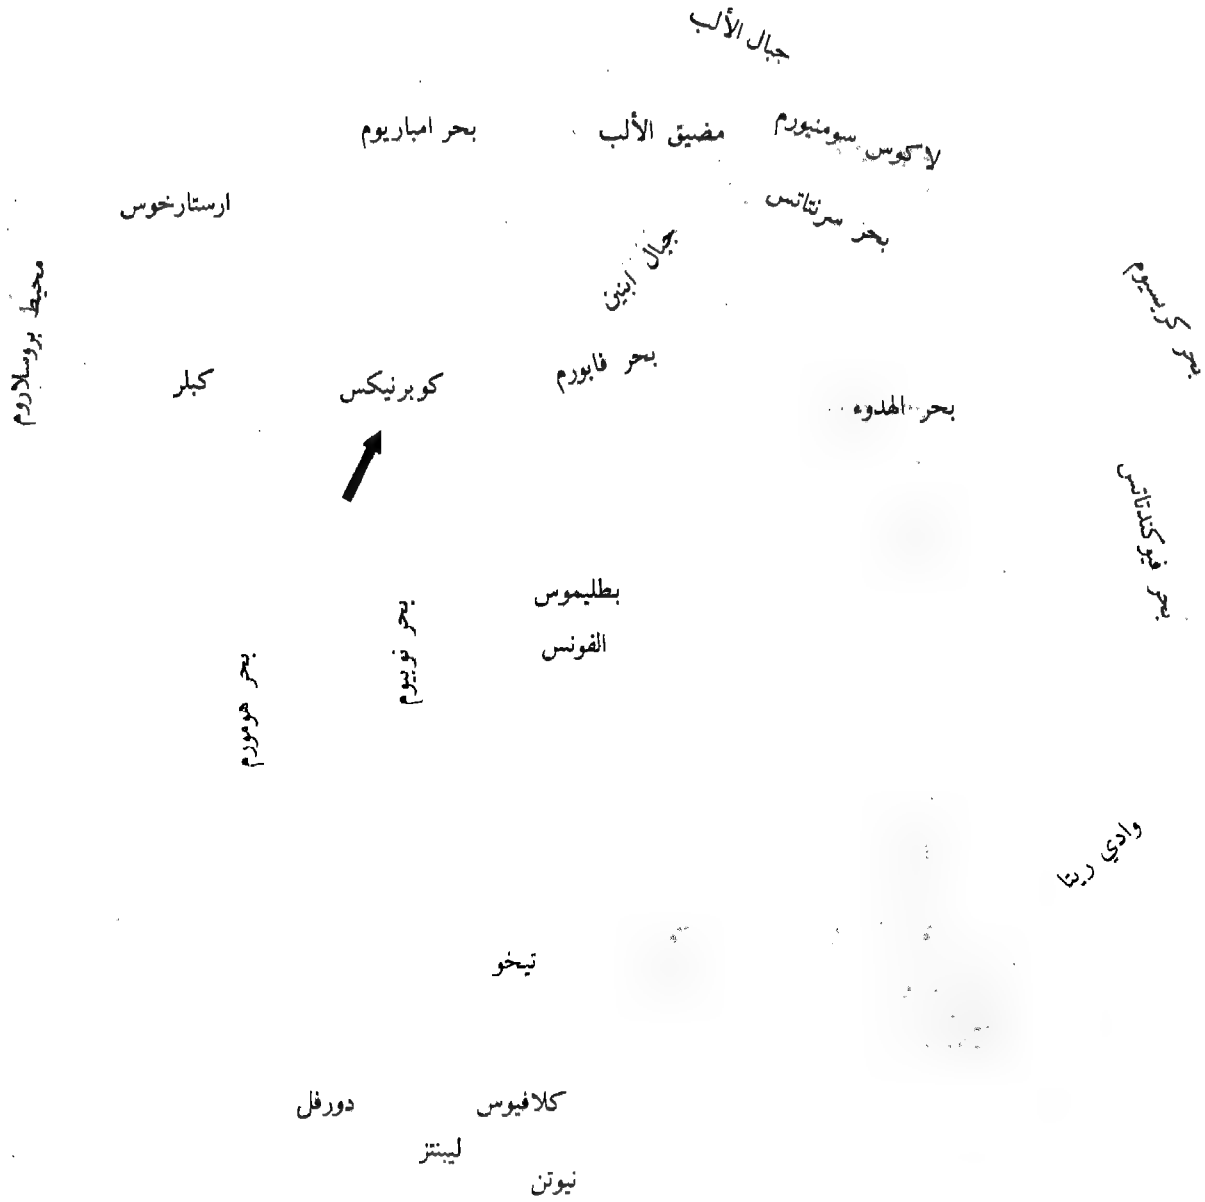 جبال الألب
بحر امباريوم
مضيق الألب
لاكوس سومنيورم
ارستارخوس
بحر سرنتاتس
جبال ابنين
محيط بروسلاروم
بحر كريسيوم
كبلر
كوبرنيكس
بحر فابورم
بحر الهدوء
بحر فيوكندتاتس
بطليموس
الفونس
بحر نوبيوم
بحر هومورم
وادي ريتا
تيخو
دورفل
كلافيوس
ليبنتز
نيوتن